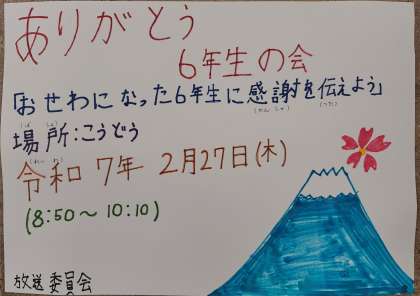 ありがとう
6年生の会
「おせわになった6年生に感謝を伝えよう」
かんしゃ つた
ばしょ
場所:こうどう
れいわ
令和7年 2月27日(木)
(8:50～10:10)
放送委員会